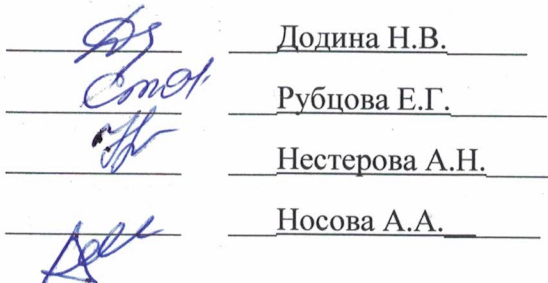 Додина Н.В.
Рубцова Е.Г.
Нестерова А.Н.
Носова А.А.